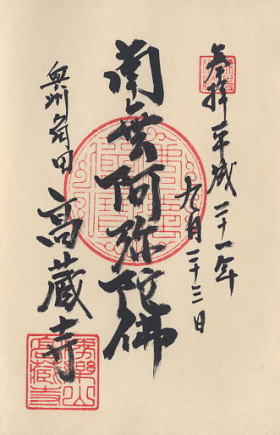 奉拝 平成二十一年
九月二十三日
南無阿弥陀佛
奥州角田
高蔵寺